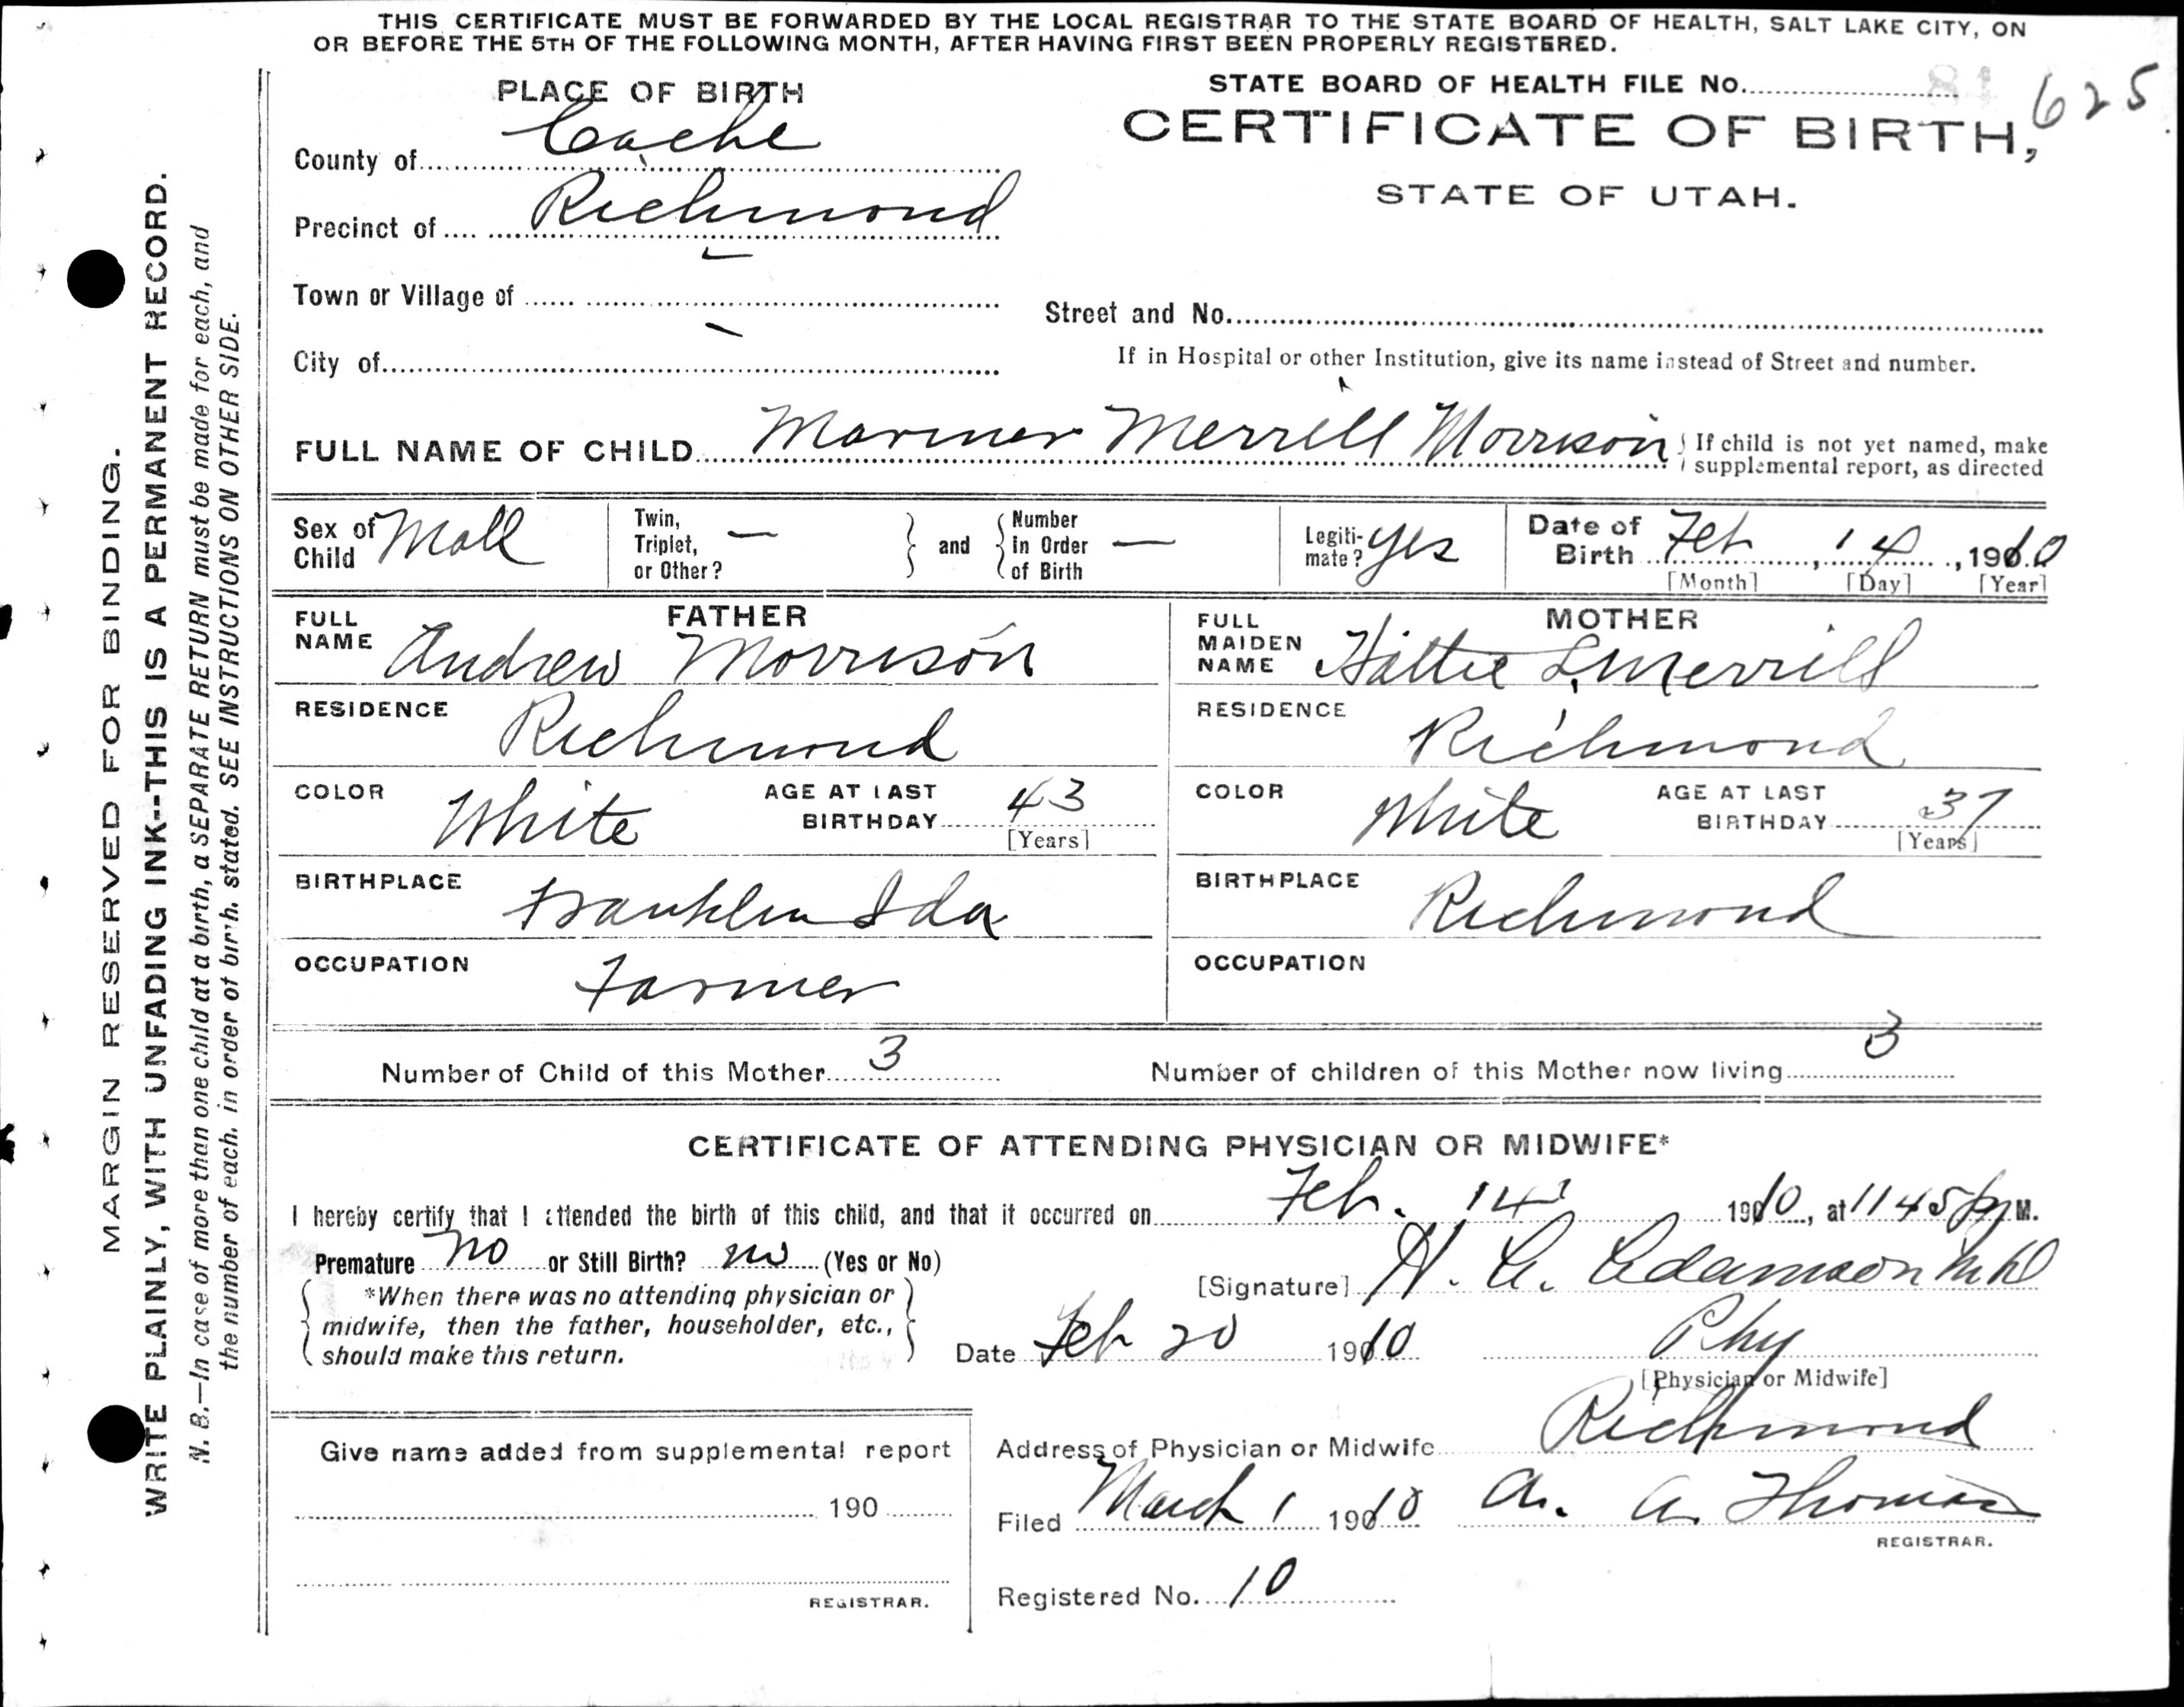 THIS CERTIFICATE MUST BE FORWARDED BY THE LOCAL REGISTRAR TO THE STATE BOARD OF HEALTH, SALT LAKE CITY, ON
OR BEFORE THE 5TH OF THE FOLLOWING MONTH, AFTER HAVING FIRST BEEN PROPERLY REGISTERED.
MARGIN RESERVED FOR BINDING.
WRITE PLAINLY, WITH UNFADING INK--THIS IS A PERMANENT RECORD.
N. B.—In case of more than one child at a birth, a SEPARATE RETURN must be made for each, and
the number of each, in order of birth, stated. SEE INSTRUCTIONS ON OTHER SIDE.
PLACE OF BIRTH
County of Cache
Precinct of Richmond
Town or Village of
City of
STATE BOARD OF HEALTH FILE No. 81 625
CERTIFICATE OF BIRTH,
STATE OF UTAH.
Street and No.
If in Hospital or other Institution, give its name instead of Street and number.
FULL NAME OF CHILD Mariner Merrill Morrison { If child is not yet named, make
supplemental report, as directed
Sex of Child Mall
Twin, Triplet, or Other? —
and
Number in Order of Birth —
Legitimate? yes
Date of Birth Feb, 14, 1910
[Month] [Day] [Year]
FATHER
FULL NAME Andrew Morrison
RESIDENCE Richmond
COLOR White AGE AT LAST BIRTHDAY 43
[Years]
BIRTHPLACE Franklin Ida
OCCUPATION Farmer
MOTHER
FULL MAIDEN NAME Hattie L. Merrill
RESIDENCE Richmond
COLOR White AGE AT LAST BIRTHDAY 37
[Years]
BIRTHPLACE Richmond
OCCUPATION
Number of Child of this Mother 3 Number of children of this Mother now living 3
CERTIFICATE OF ATTENDING PHYSICIAN OR MIDWIFE*
I hereby certify that I attended the birth of this child, and that it occurred on Feb. 14 1910, at 1145 P M.
Premature No or Still Birth? no (Yes or No)
*When there was no attending physician or
midwife, then the father, householder, etc.,
should make this return.
[Signature] W. A. Adamson M D
Date Feb 20 1910 Phy
[Physician or Midwife]
Give name added from supplemental report
190
REGISTRAR.
Address of Physician or Midwife Richmond
Filed March 1 1910 A. A. Thomas
REGISTRAR.
Registered No. 10